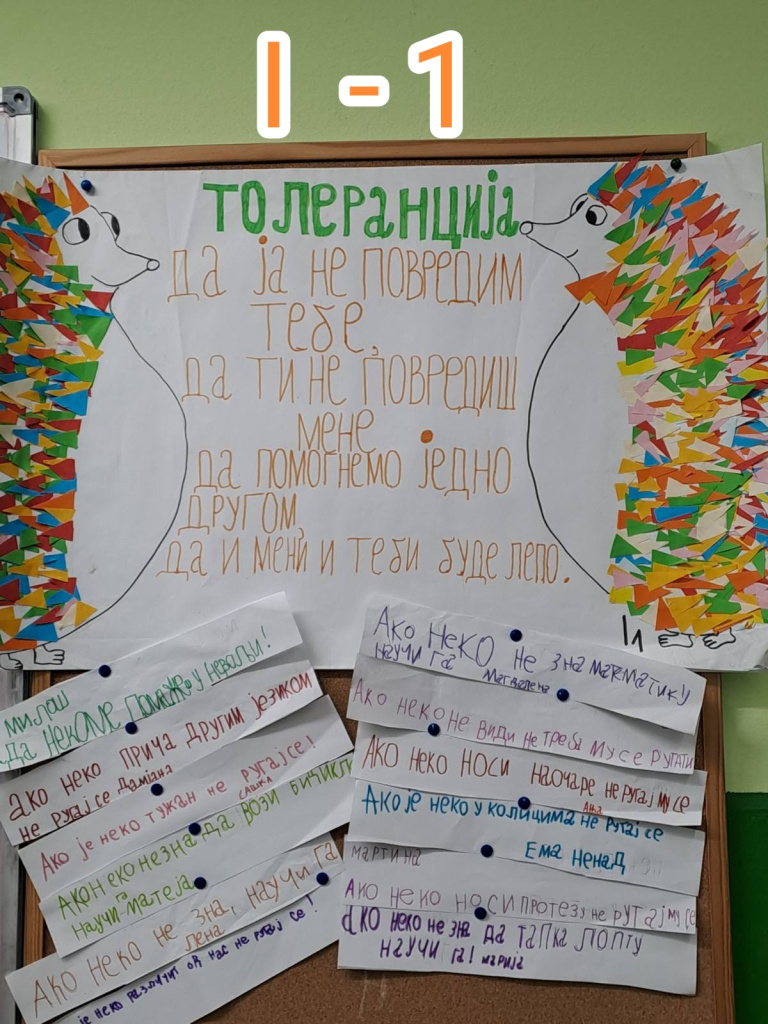 I - 1
ТОЛЕРАНЦИЈА
ДА ЈА НЕ ПОВРЕДИМ
ТЕБЕ,
ДА ТИ НЕ ПОВРЕДИШ
МЕНЕ
ДА ПОМОГНЕМО ЈЕДНО
ДРУГОМ,
ДА И МЕНИ И ТЕБИ БУДЕ ЛЕПО.
МИЛОШ
ДА НЕКОМЕ ПОМАЖЕ У НЕВОЉИ!
АКО НЕКО ПРИЧА ДРУГИМ ЈЕЗИКОМ
НЕ РУГАЈ СЕ ДАМЈАНА
АКО ЈЕ НЕКО ТУЖАН НЕ РУГАЈ СЕ!
САШКА
АКО НЕКО НЕ ЗНА ДА ВОЗИ БИЦИКЛ
НАУЧИ ГА МАТЕЈА
АКО НЕКО НЕ ЗНА, НАУЧИ ГА
ЛЕНА
ЈЕ НЕКО РАЗЛИЧИТ ОД НАС НЕ РУГАЈ СЕ!
АКО НЕКО НЕ ЗНА МАТЕМАТИКУ
НАУЧИ ГА МАГДАЛЕНА
АКО НЕКО НЕ ВИДИ НЕ ТРЕБА МУ СЕ РУГАТИ
АКО НЕКО НОСИ НАОЧАРЕ НЕ РУГАЈ МУ СЕ
АЊА
АКО ЈЕ НЕКО У КОЛИЦИМА НЕ РУГАЈ СЕ
ЕМА НЕНАД
МАРТИНА
АКО НЕКО НОСИ ПРОТЕЗУ НЕ РУГАЈ МУ СЕ
АКО НЕКО НЕ ЗНА ДА ТАПКА ЛОПТУ
НАУЧИ ГА! МАРИЈА